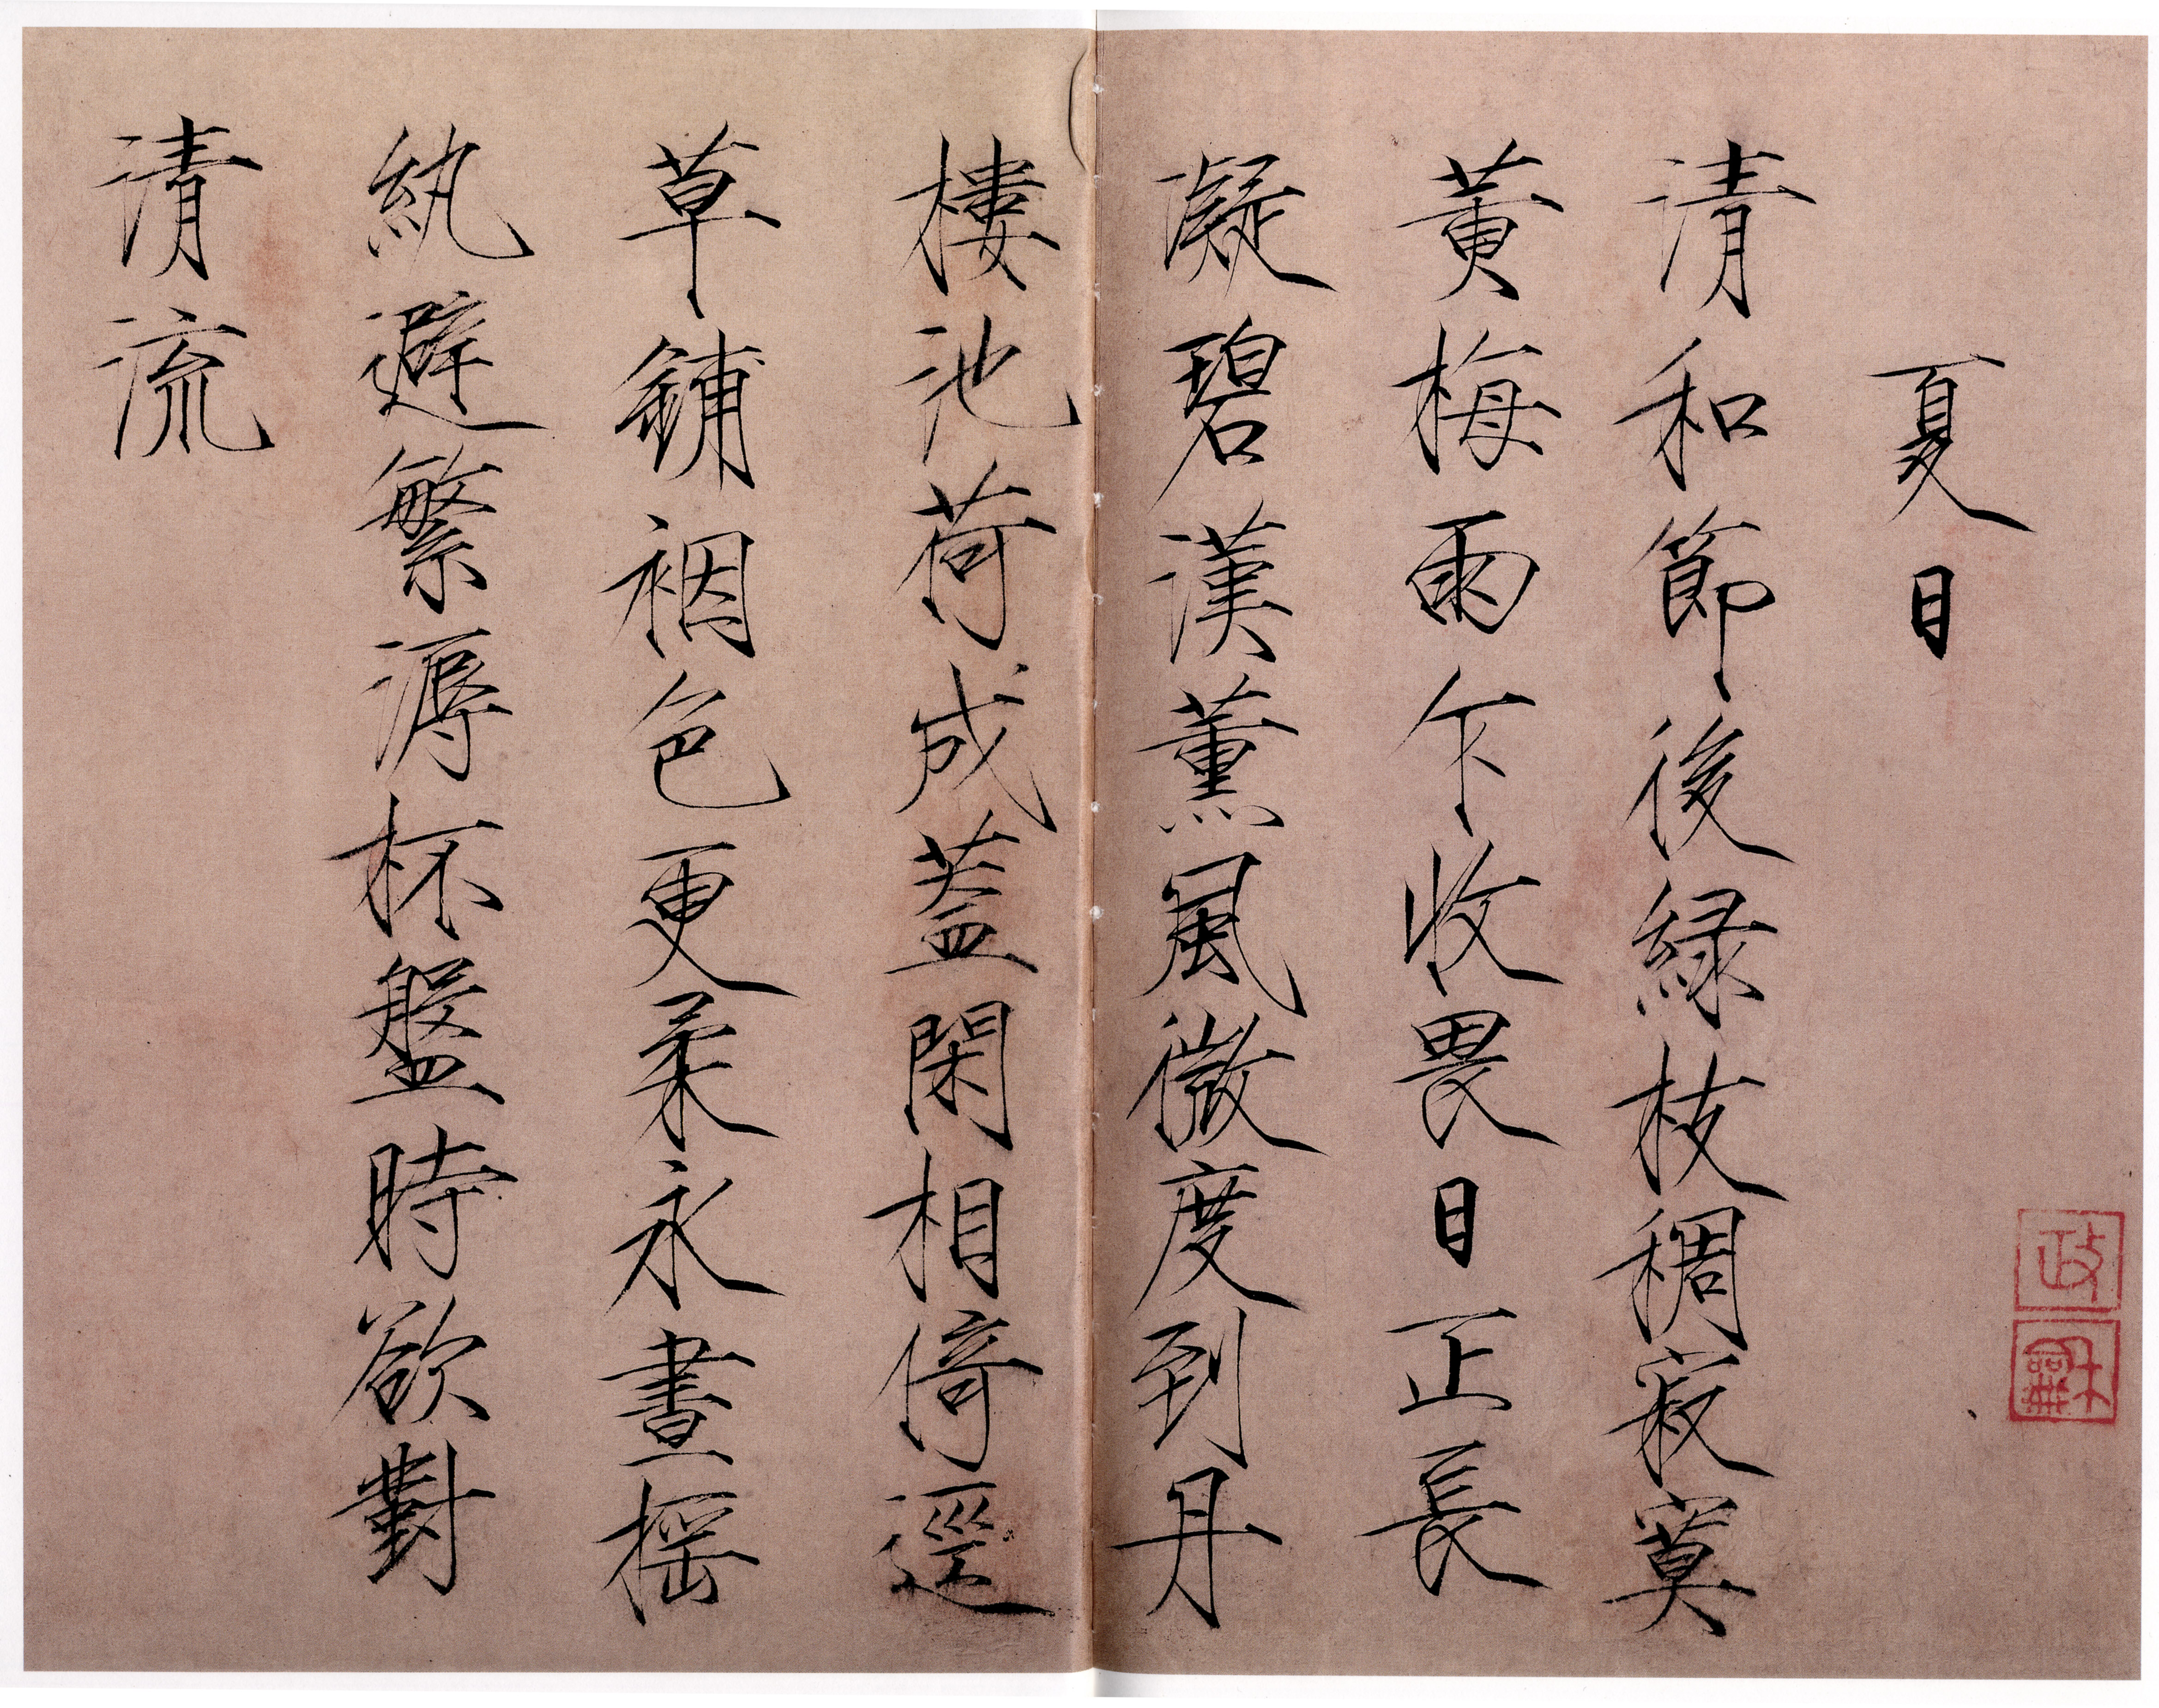 夏日
清和節後綠枝稠寂寞
黃梅雨乍收畏日正長
凝碧漢薰風微度到丹
樓池荷成蓋閑相倚逕
草鋪裀色更柔永晝搖
紈避繁溽杯盤時欲對
清流
政
龢